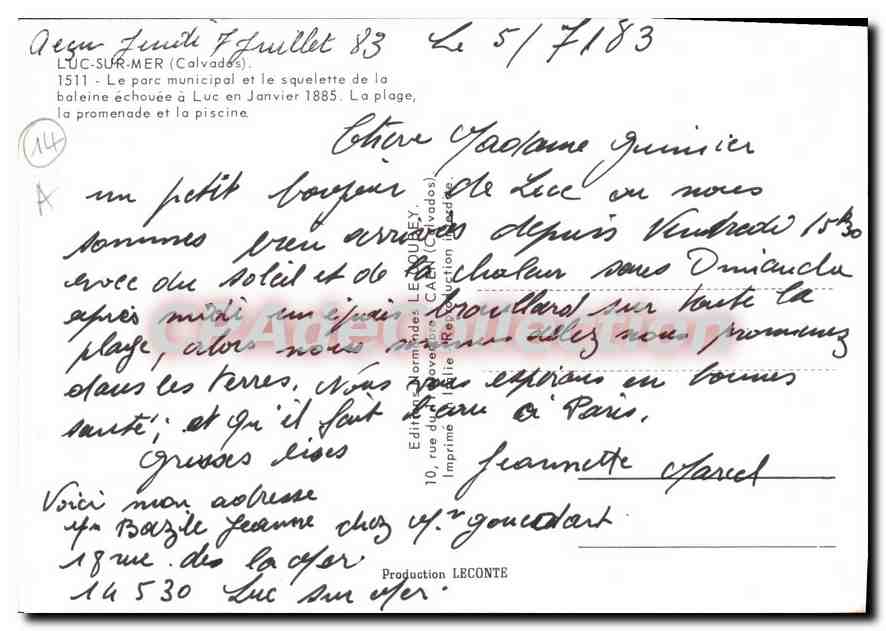 reçu Jeudi 7 Juillet 83
Le 5/7/83
LUC-SUR-MER (Calvados).
1511 - Le parc municipal et le squelette de la
baleine échouée à Luc en Janvier 1885. La plage,
la promenade et la piscine.
14
A
Chère Madame
un petit bonjour de Luc ou nous
sommes bien arrivés depuis Vendredi 15h30
avec du soleil et de la chaleur sans Dimanche
après midi un épais brouillard sur toute la
plage, alors nous sommes allez nous promenez
dans les terres. Nous vous espérons en bonnes
santé, et qu'il fait beau à Paris.
Grosses bises
Jeannette Marcel
Voici mon adresse
Mme Bazile Jeanne chez Mr
18 rue des la Mer
14530 Luc sur Mer.
Editions Normandes LE GOUBEY.
10, rue du 11 novembre CAEN (Calvados)
Imprimé en Italie - Reproduction interdite.
Production LECONTE
CPAdeCollection